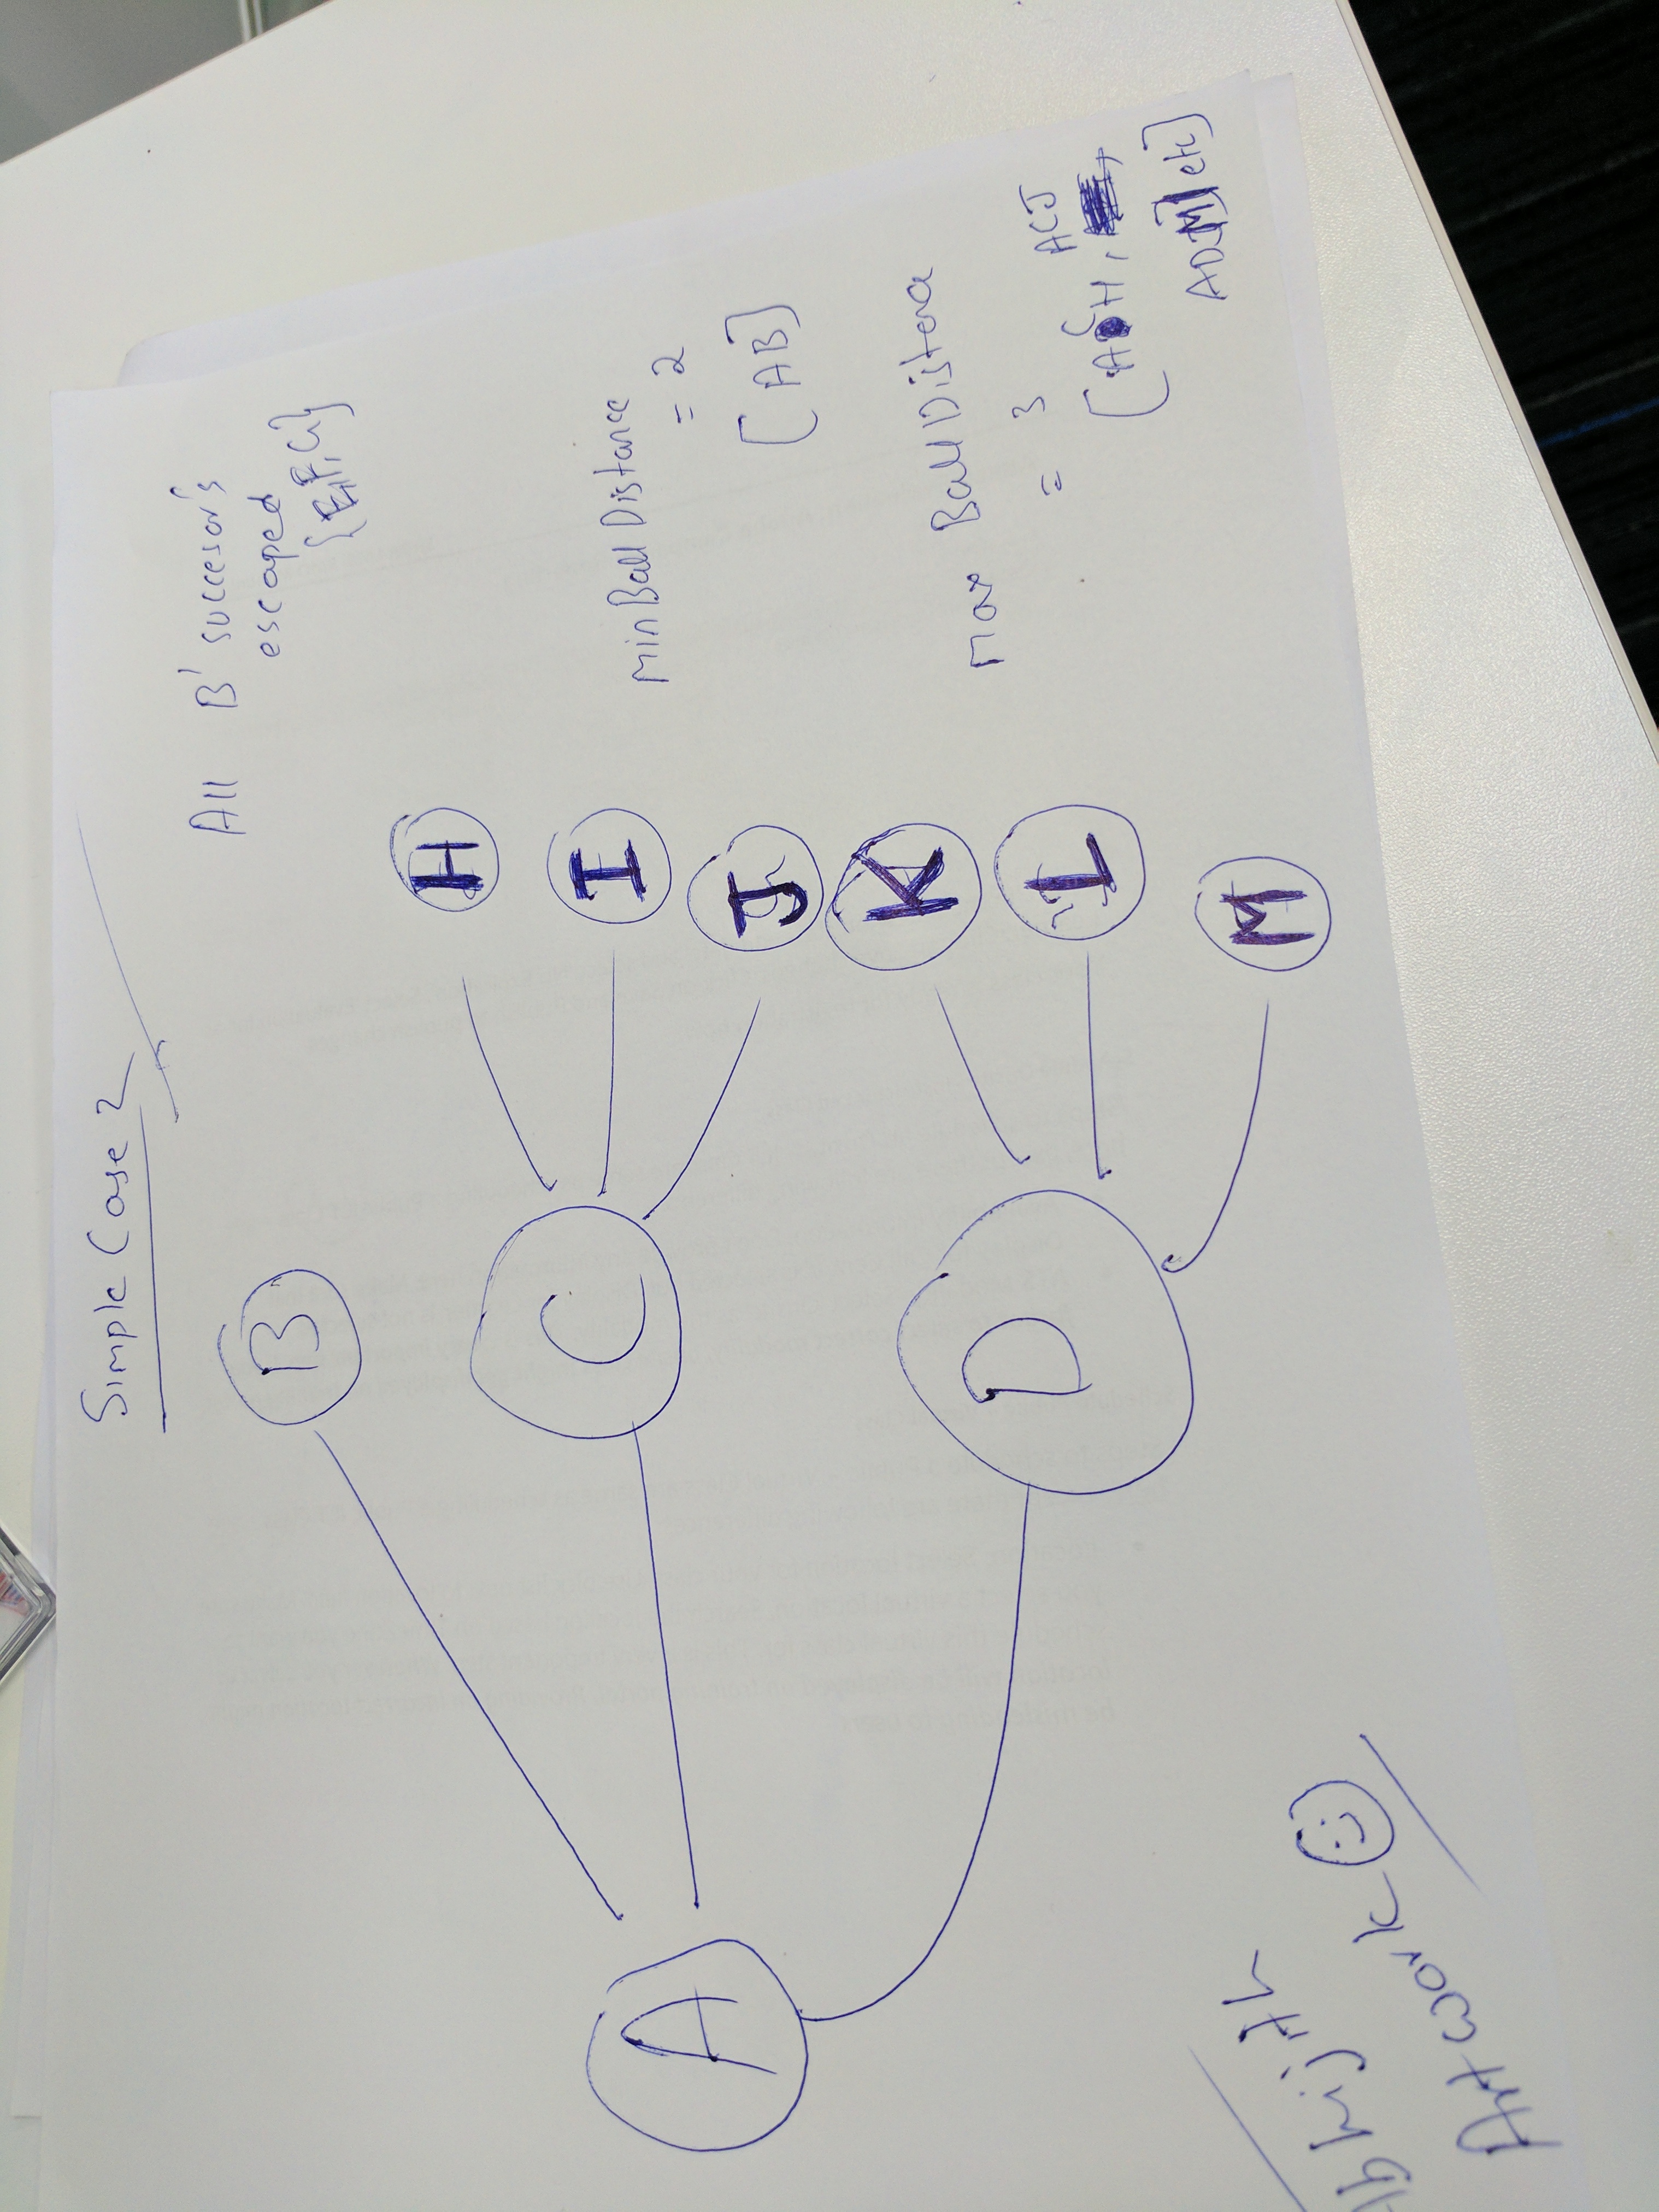 Simple Case 2
All B' succesor's
escaped
{E,F,G}
A
B
C
D
H
I
J
K
L
M
Min Ball Distance
= 2
[AB]
Max Ball Distance
= 3
[ACH, ACJ,
ADM etc]
Abhijith
Artwork